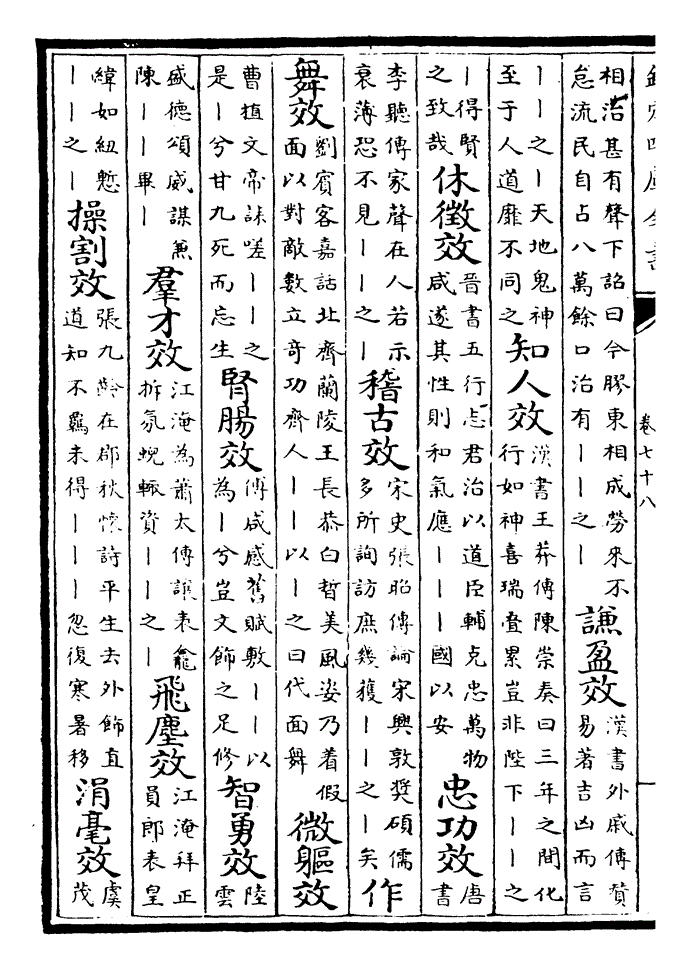 欽定四庫全書
卷七十八
相治甚有聲下詔曰今膠東相成勞來不
怠流民自占八萬餘口治有丨丨之丨
謙盈效
漢書外戚傳贊
易著吉凶而言
丨丨之丨天地鬼神
至于人道靡不同之
知人效
漢書王莽傳陳崇奏曰三年之間化
行如神喜瑞疊累豈非陛下丨丨之
丨得賢
之致哉
休徵效
晉書五行志君治以道臣輔克忠萬物
咸遂其性則和氣應丨丨丨國以安
忠功效
唐
書
李聽傳家聲在人若示
衰薄恐不見丨丨之丨
稽古效
宋史張昭傳論宋興敦奬碩儒
多所詢訪庶幾獲丨丨之丨矣
作
舞效
劉賓客嘉話北齊蘭陵王長恭白晳美風姿乃着假
面以對敵數立奇功齊人丨丨以丨之曰代面舞
微軀效
曹植文帝誄嗟丨丨之
是丨兮甘九死而忘生
腎腸效
傅咸感舊賦敷丨丨以
為丨兮豈文飾之足修
智勇效
陸
雲
盛德頌威謀兼
陳丨丨畢丨
羣才效
江淹為蕭太傅讓表龕
拆氛蜺輙資丨丨之丨
飛塵效
江淹拜正
員郎表皇
緯如紐慙
丨丨之丨
操割效
張九齡在郡秋懷詩平生去外飾直
道知不羈未得丨丨丨忽復寒暑移
涓毫效
虞
茂